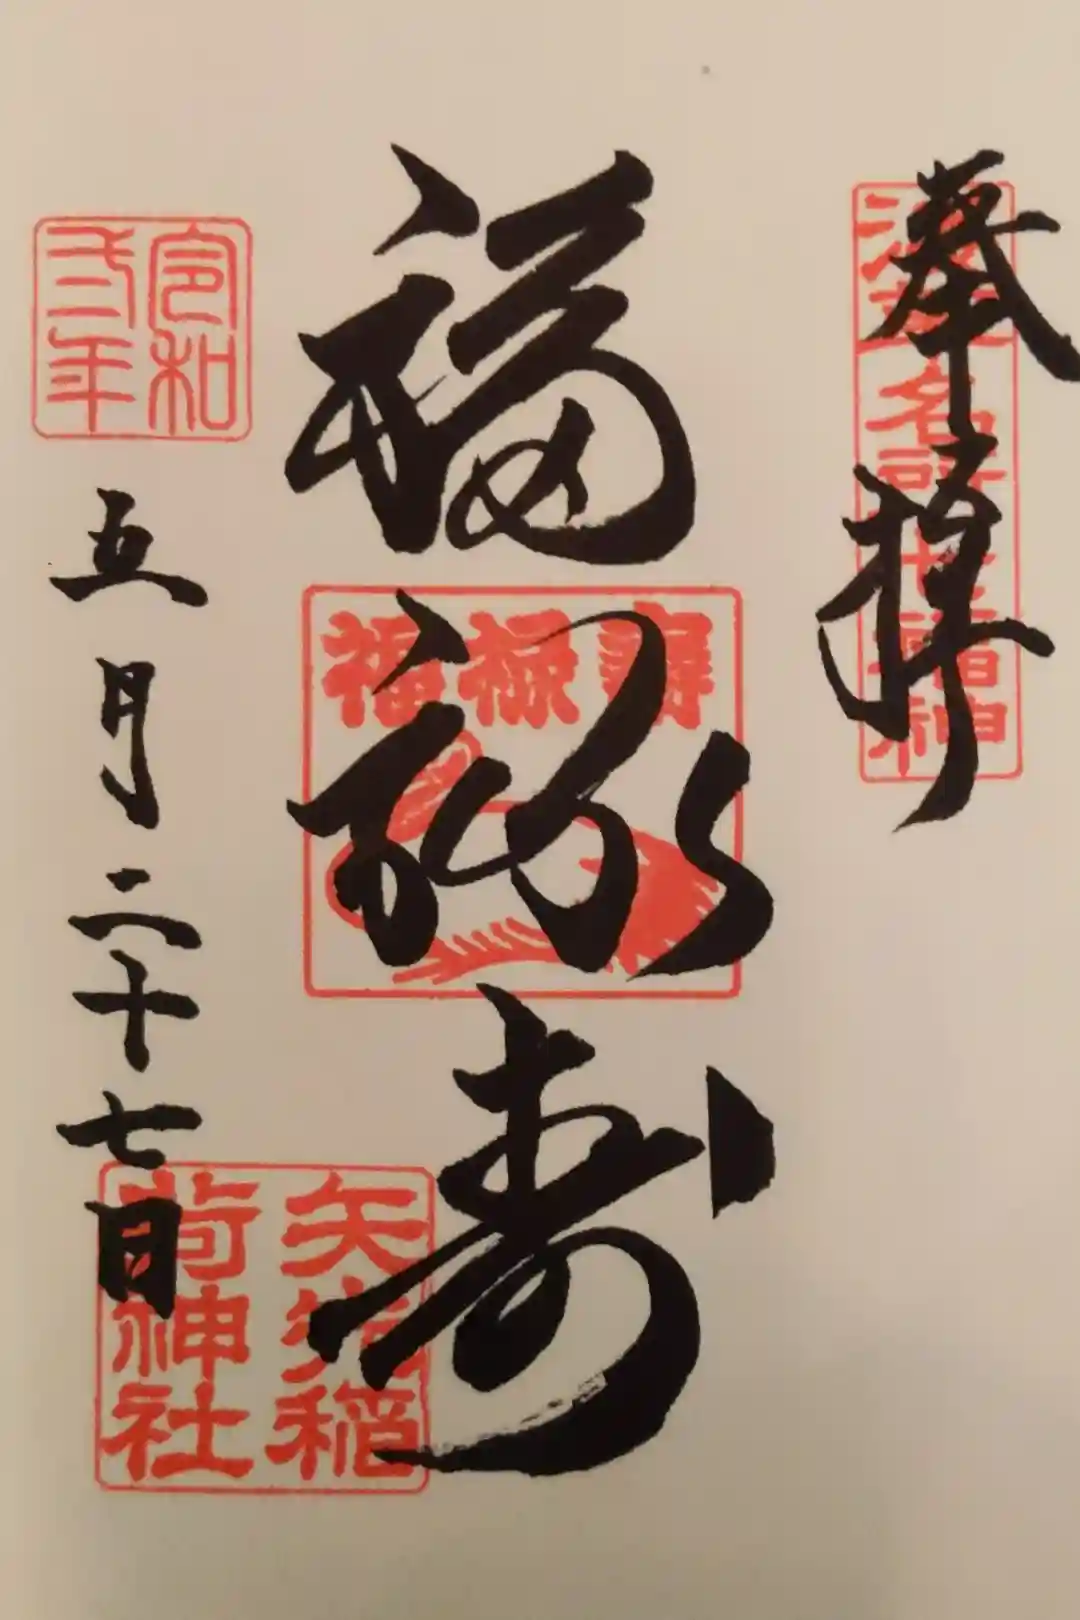 奉拝
浅草名所七福神
福禄寿
福禄壽
令和弐年
五月二十七日
矢先稲
荷神社